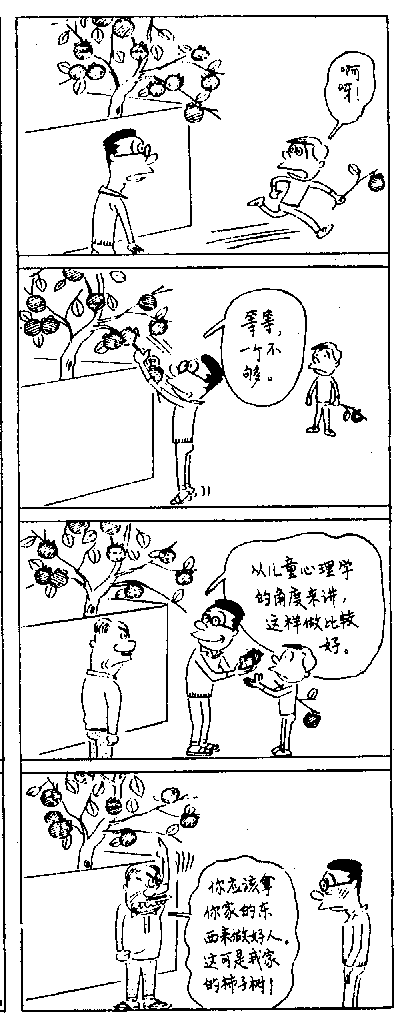 啊
呀！
等等，
一个不
够。
从儿童心理学
的角度来讲，
这样做比较
好。
你应该拿
你家的东
西来做好人。
这可是我家
的柿子树！